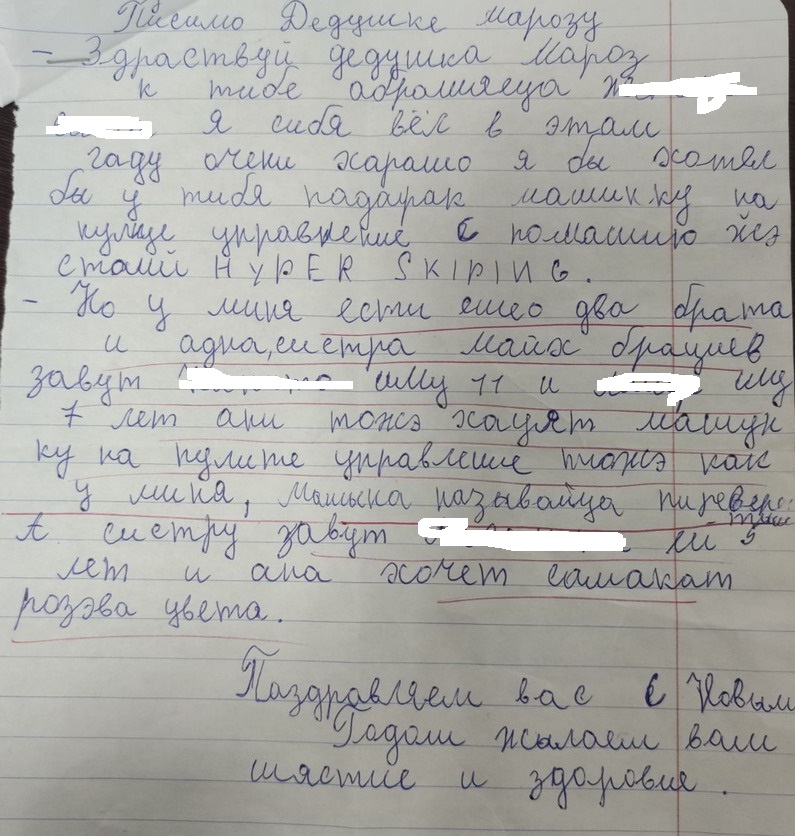 Писмо Дедушке марозу
- Здраствуй дедушка Мароз
к тибе абрашяеца
. Я сибя вёл в этам
гаду очени харашо я бы хотял
бы у тибя падарак машинку на
управление с помащию
стаий HYPER SKIPING.
- Но у миня ести ешео два брата
и адна, систра майх брациев
завут иму 11 и иму
7 лет ани тожэ хацят машун
ку на пулите управление тожэ как
у миня, Машына называйца пиревер
А систру завут ей 5
лет и ана хочет самакат
розэва цвета.
Паздравляем вас с Новым
Годом жылаем вам
шястие и здоровие.